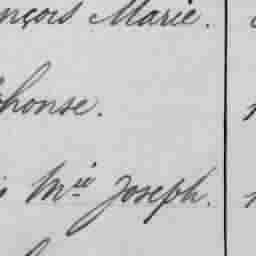 nçois Marie.
phonse.
s Mie Joseph.